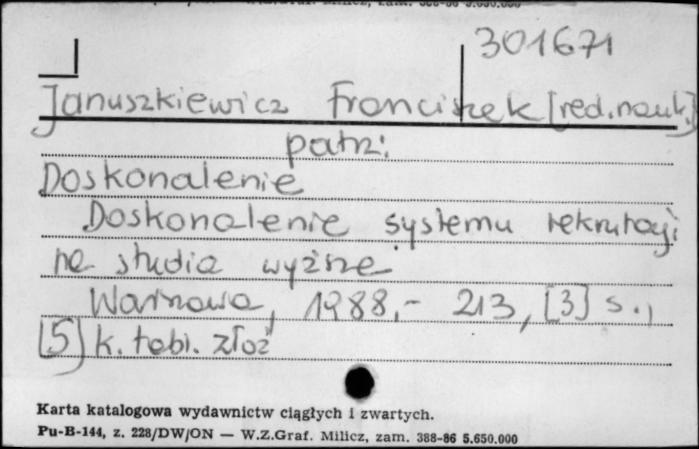 301671
Januszkiewicz Franciszek [red. nauk.]
patrz:
Doskonalenie
Doskonalenie systemu rekrutacji
na studia wyższe
Warszawa, 1988,- 213, [3] s.,
[5] k. tabl. złoż
Karta katalogowa wydawnictw ciągłych i zwartych.
Pu-B-144, z. 228/DW/ON — W.Z.Graf. Milicz, zam. 388-86 5.650.000